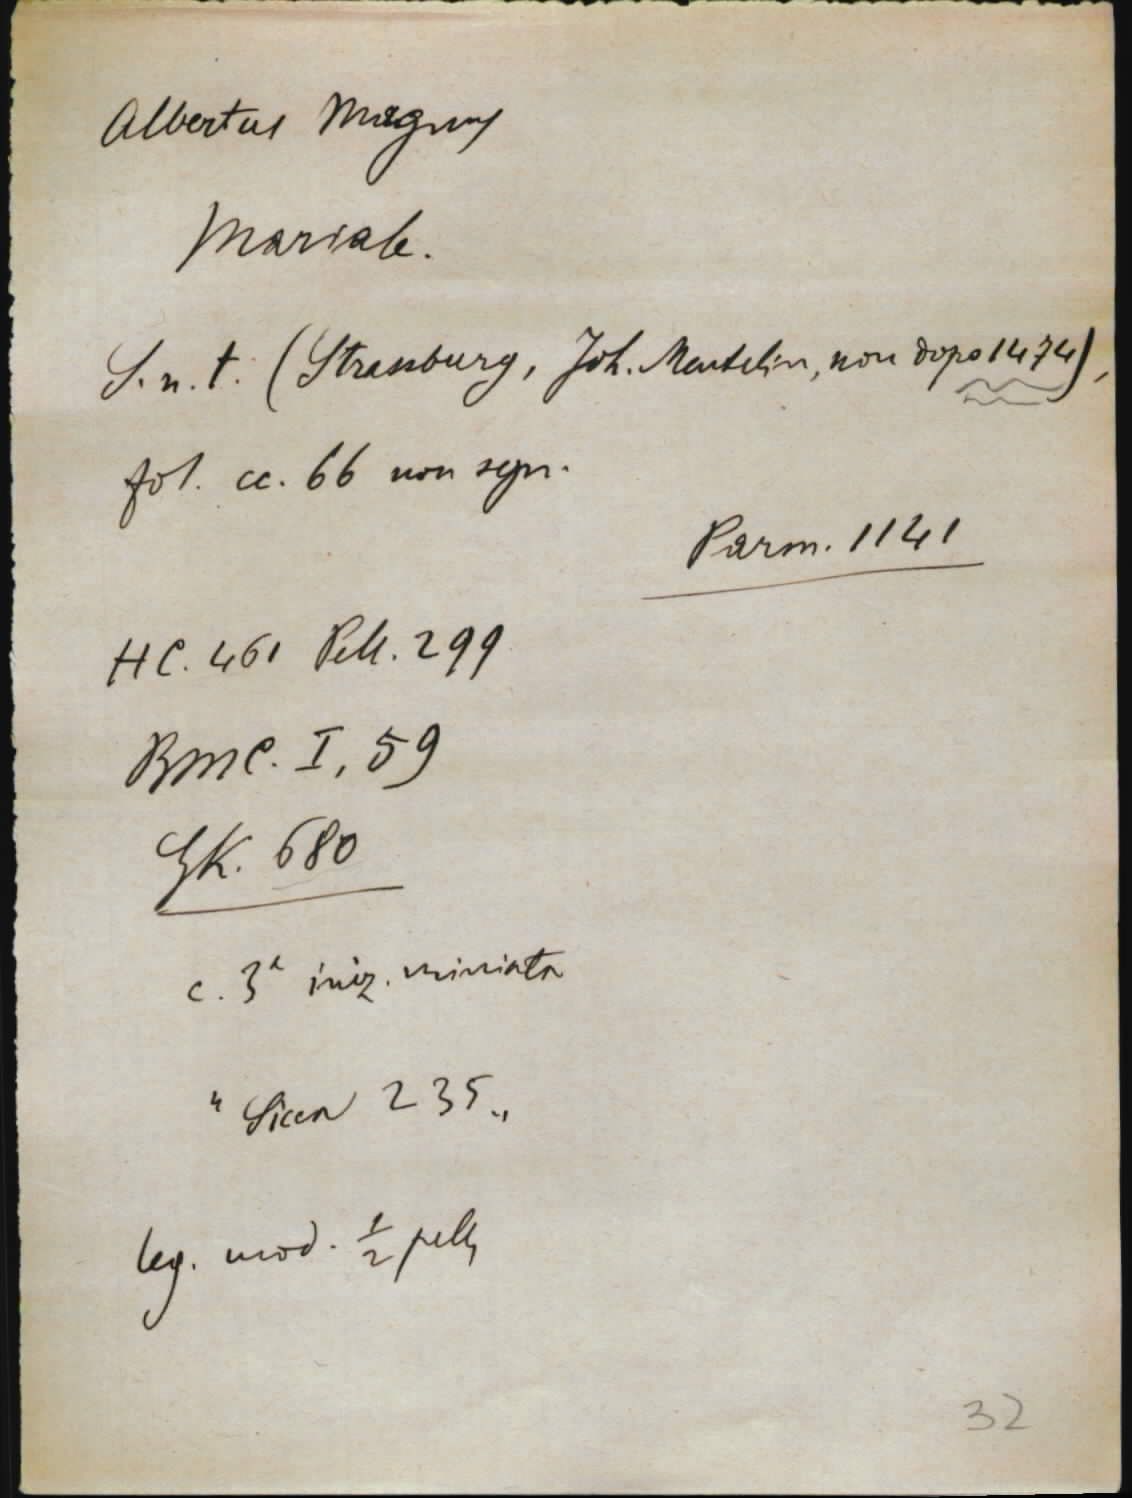 Albertus Magnus
Mariale.
S. n. t. (Strassburg, Joh. Mentelin, non dopo 1474),
fol. cc. 66 non segn.
Parm. 1141
HC. 461 Pell. 299
BMC. I, 59
GK. 680
c. 3ª iniz. miniata
" 235 "
leg. mod. 1/2 pelle
32